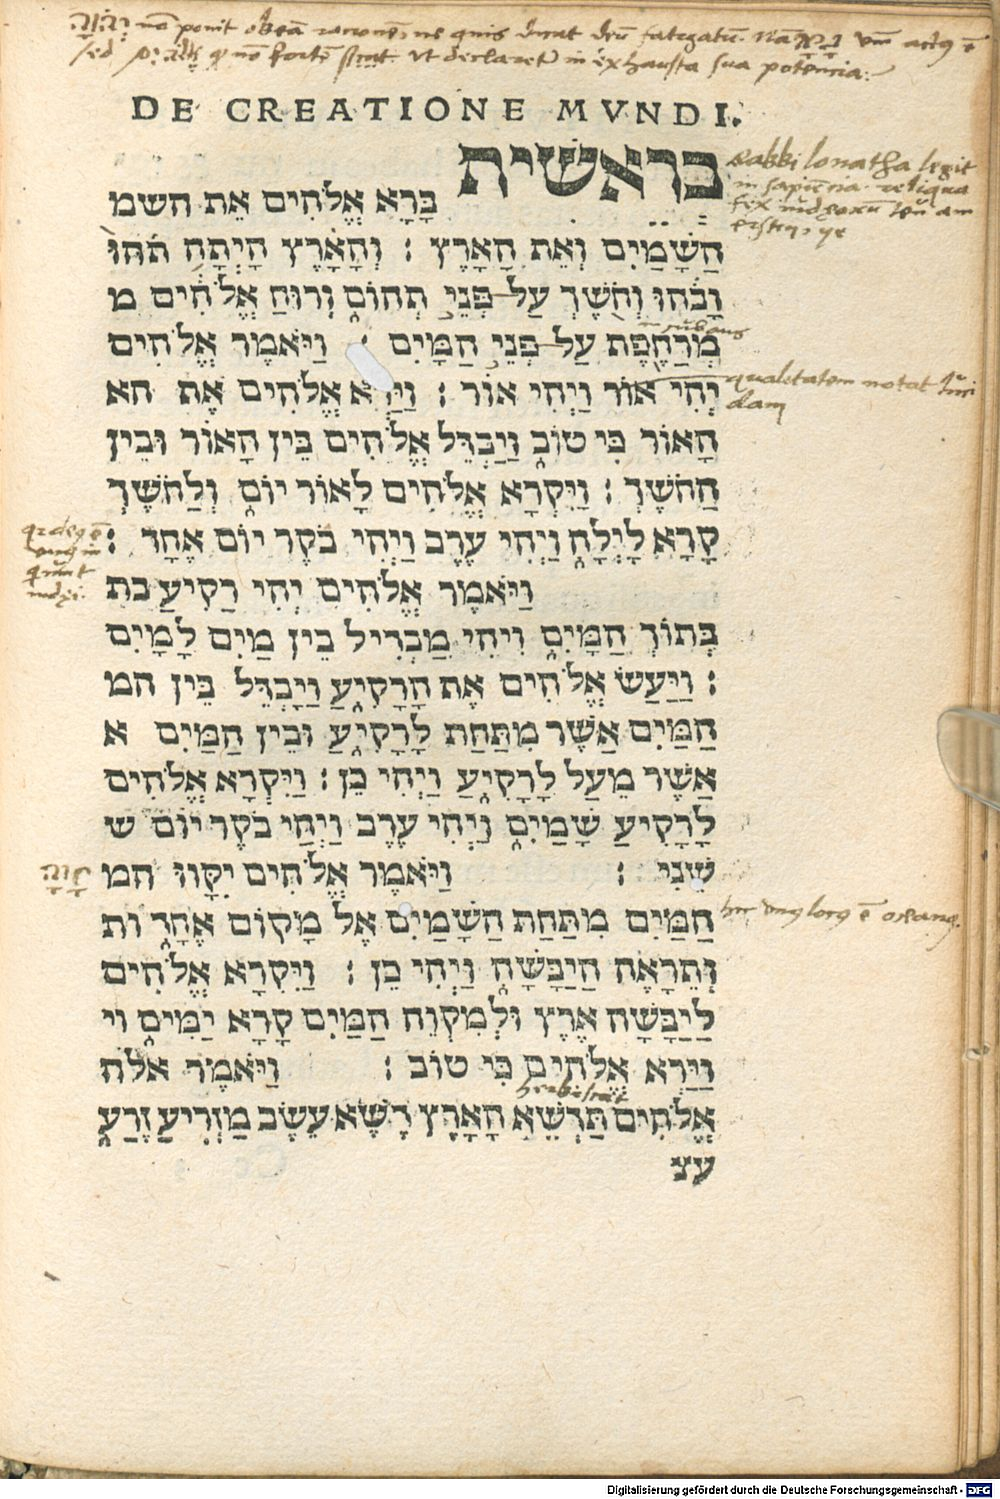 DE CREATIONE MVNDI.
בראשית
בָּרָא אֱלֹהִים אֵת השמ
הַשָּׁמַיִם וְאֵת הָאָרֶץ : וְהָאָרֶץ הָיְתָה תֹהוּ
וָבֹהוּ וְחֹשֶׁךְ עַל־פְּנֵי תְהוֹם וְרוּחַ אֱלֹהִים מ
מְרַחֶפֶת עַל־פְּנֵי הַמָּיִם : וַיֹּאמֶר אֱלֹהִים
יְהִי אוֹר וַיְהִי אוֹר : וַיַּרְא אֱלֹהִים אֶת הא
הָאוֹר כִּי טוֹב וַיַּבְדֵּל אֱלֹהִים בֵּין הָאוֹר וּבֵין
הַחֹשֶׁךְ : וַיִּקְרָא אֱלֹהִים לָאוֹר יוֹם וְלַחֹשֶׁךְ
קָרָא לָיְלָה וַיְהִי עֶרֶב וַיְהִי בֹקֶר יוֹם אֶחָד :
וַיֹּאמֶר אֱלֹהִים יְהִי רָקִיעַ בת
בְּתוֹךְ הַמָּיִם וִיהִי מַבְדִּיל בֵּין מַיִם לָמָיִם
: וַיַּעַשׂ אֱלֹהִים אֶת הָרָקִיעַ וַיַּבְדֵּל בֵּין המ
הַמַּיִם אֲשֶׁר מִתַּחַת לָרָקִיעַ וּבֵין הַמַּיִם א
אֲשֶׁר מֵעַל לָרָקִיעַ וַיְהִי כֵן : וַיִּקְרָא אֱלֹהִים
לָרָקִיעַ שָׁמָיִם וַיְהִי עֶרֶב וַיְהִי בֹקֶר יוֹם ש
שֵׁנִי : וַיֹּאמֶר אֱלֹהִים יִקָּווּ המ
הַמַּיִם מִתַּחַת הַשָּׁמַיִם אֶל מָקוֹם אֶחָד ות
וְתֵרָאֶה הַיַּבָּשָׁה וַיְהִי כֵן : וַיִּקְרָא אֱלֹהִים
לַיַּבָּשָׁה אֶרֶץ וּלְמִקְוֵה הַמַּיִם קָרָא יַמִּים וי
וַיַּרְא אֱלֹהִים כִּי טוֹב : וַיֹּאמֶר אלה
אֱלֹהִים תַּדְשֵׁא הָאָרֶץ דֶּשֶׁא עֵשֶׂב מַזְרִיעַ זֶרַע
עצ
Rabbi Ionatha legit
in sapiencia reliqua
qualitatem notat luci
dam
Digitalisierung gefördert durch die Deutsche Forschungsgemeinschaft - DFG